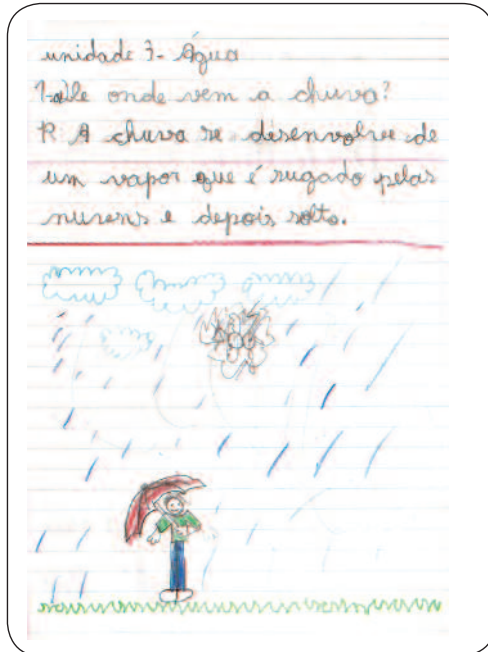 unidade 7- Água
1-a) De onde vem a chuva?
R A chuva se desenvolve de
um vapor que é sugado pelas
nuvens e depois solto.